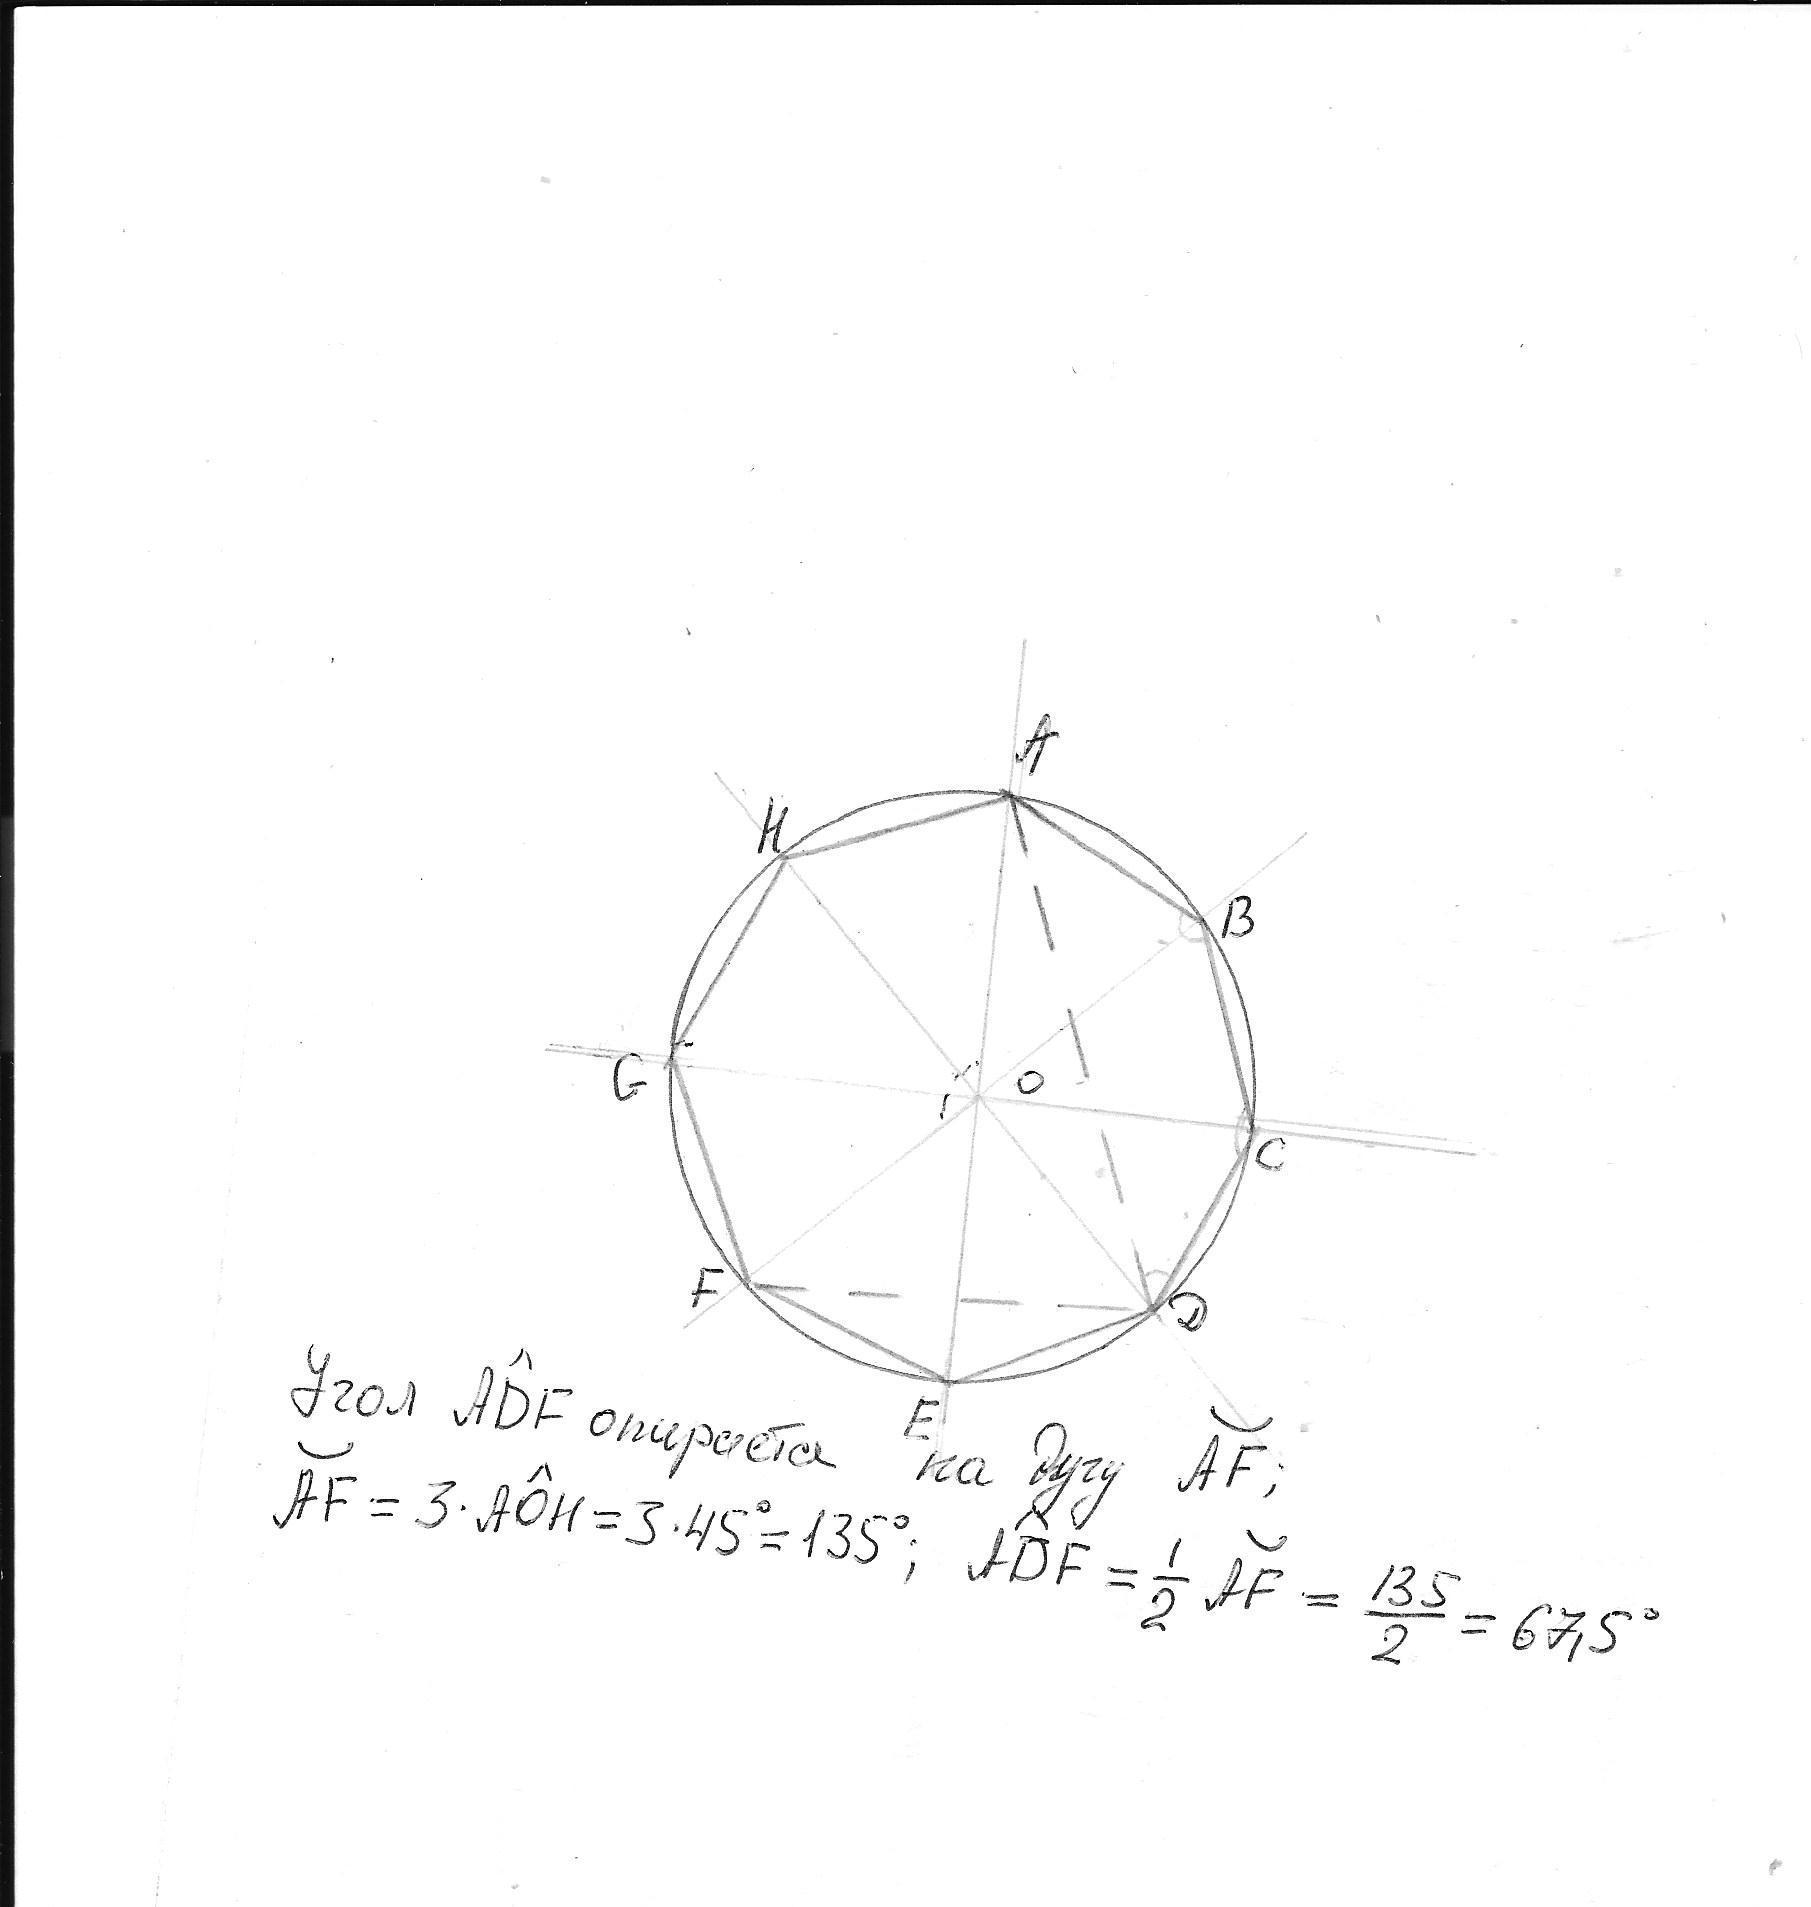 A
H
B
G
O
C
F
D
E
Угол AD̂F опирается на дугу A͝F;
A͝F = 3·AÔH = 3·45° = 135°; AD̂F = 1/2 A͝F = 135/2 = 67,5°